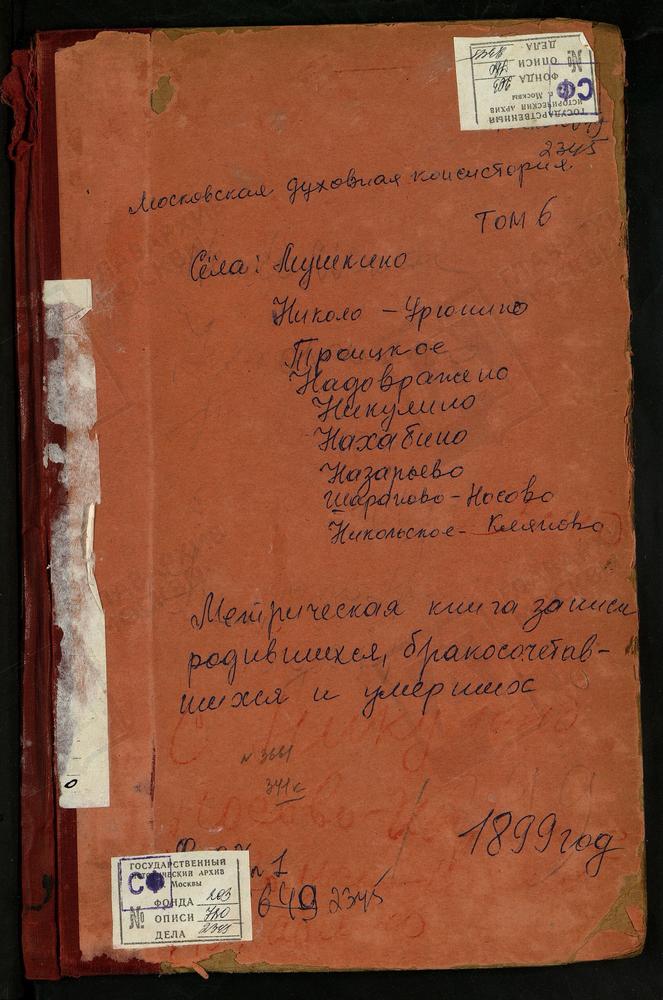 ГОСУДАРСТВЕННЫЙ
ИСТОРИЧЕСКИЙ АРХИВ
г. Москвы
СФ
ФОНДА 203
№ ОПИСИ 780
ДЕЛА
2345
Московская духовная консистория
Том 6
Сёла: Мушкино
Николо - Урюпино
Троицкое
Надовражено
Никулино
Нахабино
Назарьево
Шарапово - Носово
Никольское - Кляпово
Метрическая книга записи
родившихся, бракосочетав-
шихся и умерших
N 3661
341к
1899 год
1
649 2345
ГОСУДАРСТВЕННЫЙ
ИСТОРИЧЕСКИЙ АРХИВ
г. Москвы
СФ
ФОНДА 203
№ ОПИСИ 780
ДЕЛА 2345